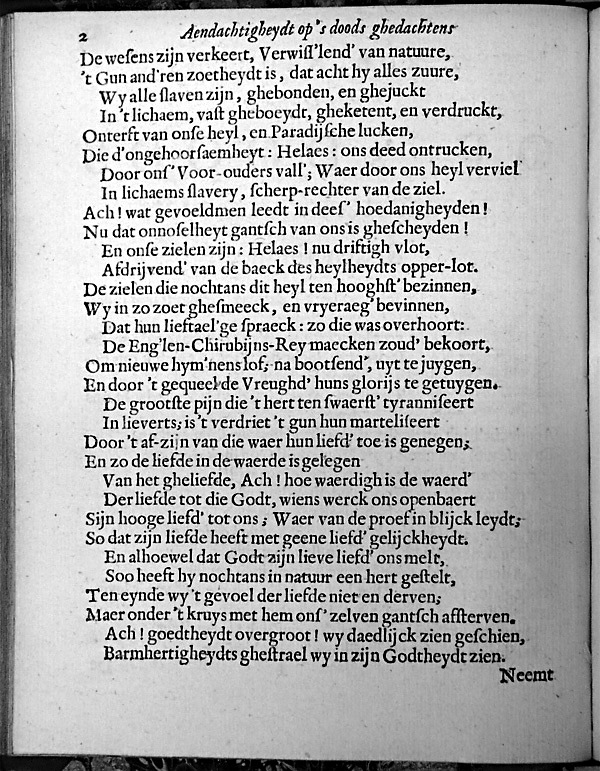 2 Aendachtigheydt op's doods ghedachtens
De wesens zijn verkeert, Verwiss'lend' van natuure,
't Gun and'ren zoetheydt is, dat acht hy alles zuure,
Wy alle slaven zijn, ghebonden, en ghejuckt
In 't lichaem, vast gheboeydt, gheketent, en verdruckt,
Onterft van onse heyl, en Paradijsche lucken,
Die d'ongehoorsaemheyt: Helaes: ons deed ontrucken,
Door ons' Voor-ouders vall'; Waer door ons heyl verviel
In lichaems slavery, scherp-rechter van de ziel.
Ach! wat gevoeldmen leedt in dees' hoedanigheyden!
Nu dat onnoselheyt gantsch van ons is ghescheyden!
En onse zielen zijn: Helaes! nu driftigh vlot,
Afdrijvend' van de baeck des heylheydts opper-lot.
De zielen die nochtans dit heyl ten hooghst' bezinnen,
Wy in zo zoet ghesmeeck, en vryeraeg' bevinnen,
Dat hun lieftael'ge spraeck: zo die was overhoort:
De Eng'len-Chirubijns-Rey maecken zoud' bekoort,
Om nieuwe hym'nens lof, na bootsend', uyt te juygen,
En door 't gequeel de Vreughd' huns glorijs te getuygen.
De grootste pijn die 't hert ten swaerst' tyranniseert
In lieverts; is 't verdriet 't gun hun marteliseert
Door 't af-zijn van die waer hun liefd' toe is genegen;
En zo de liefde in de waerde is gelegen
Van het gheliefde, Ach! hoe waerdigh is de waerd'
Der liefde tot die Godt, wiens werck ons openbaert
Sijn hooge liefd' tot ons; Waer van de proef in blijck leydt;
So dat zijn liefde heeft met geene liefd' gelijckheydt.
En alhoewel dat Godt zijn lieve liefd' ons melt,
Soo heeft hy nochtans in natuur een hert gestelt,
Ten eynde wy 't gevoel der liefde niet en derven;
Maer onder 't kruys met hem ons' zelven gantsch afsterven.
Ach! goedtheydt overgroot! wy daedlijck zien geschien,
Barmhertigheydts ghestrael wy in zijn Godtheydt zien.
Neemt